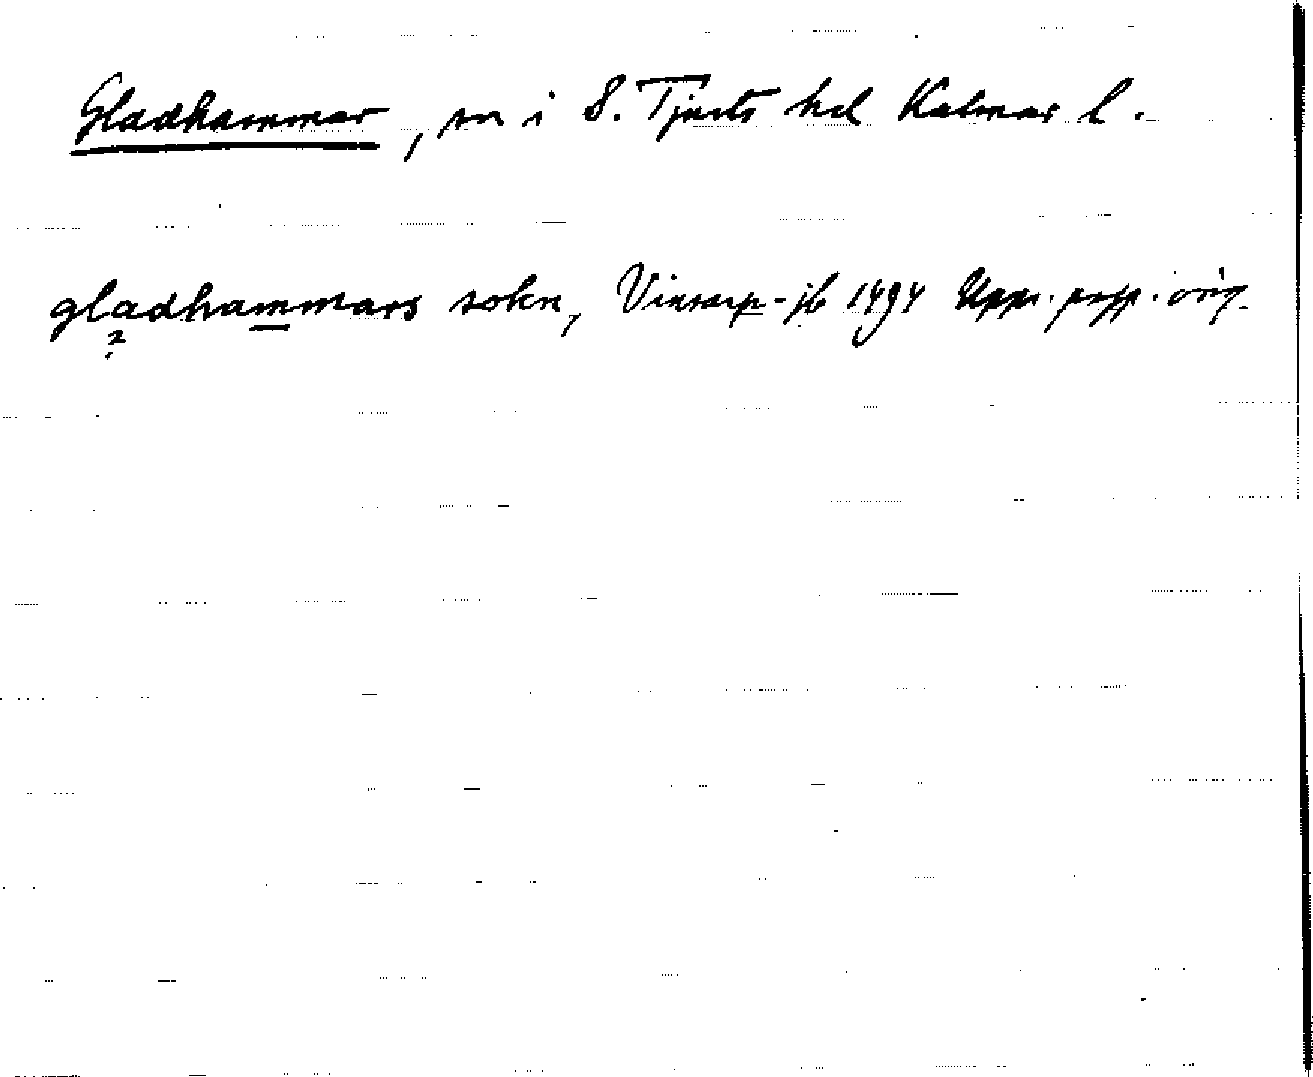 Gladhammar, sn i S. Tjusts hd Kalmar l.
gladhammars sokn, Vinsarp-jb 1494 Upps. papp. orig.
?